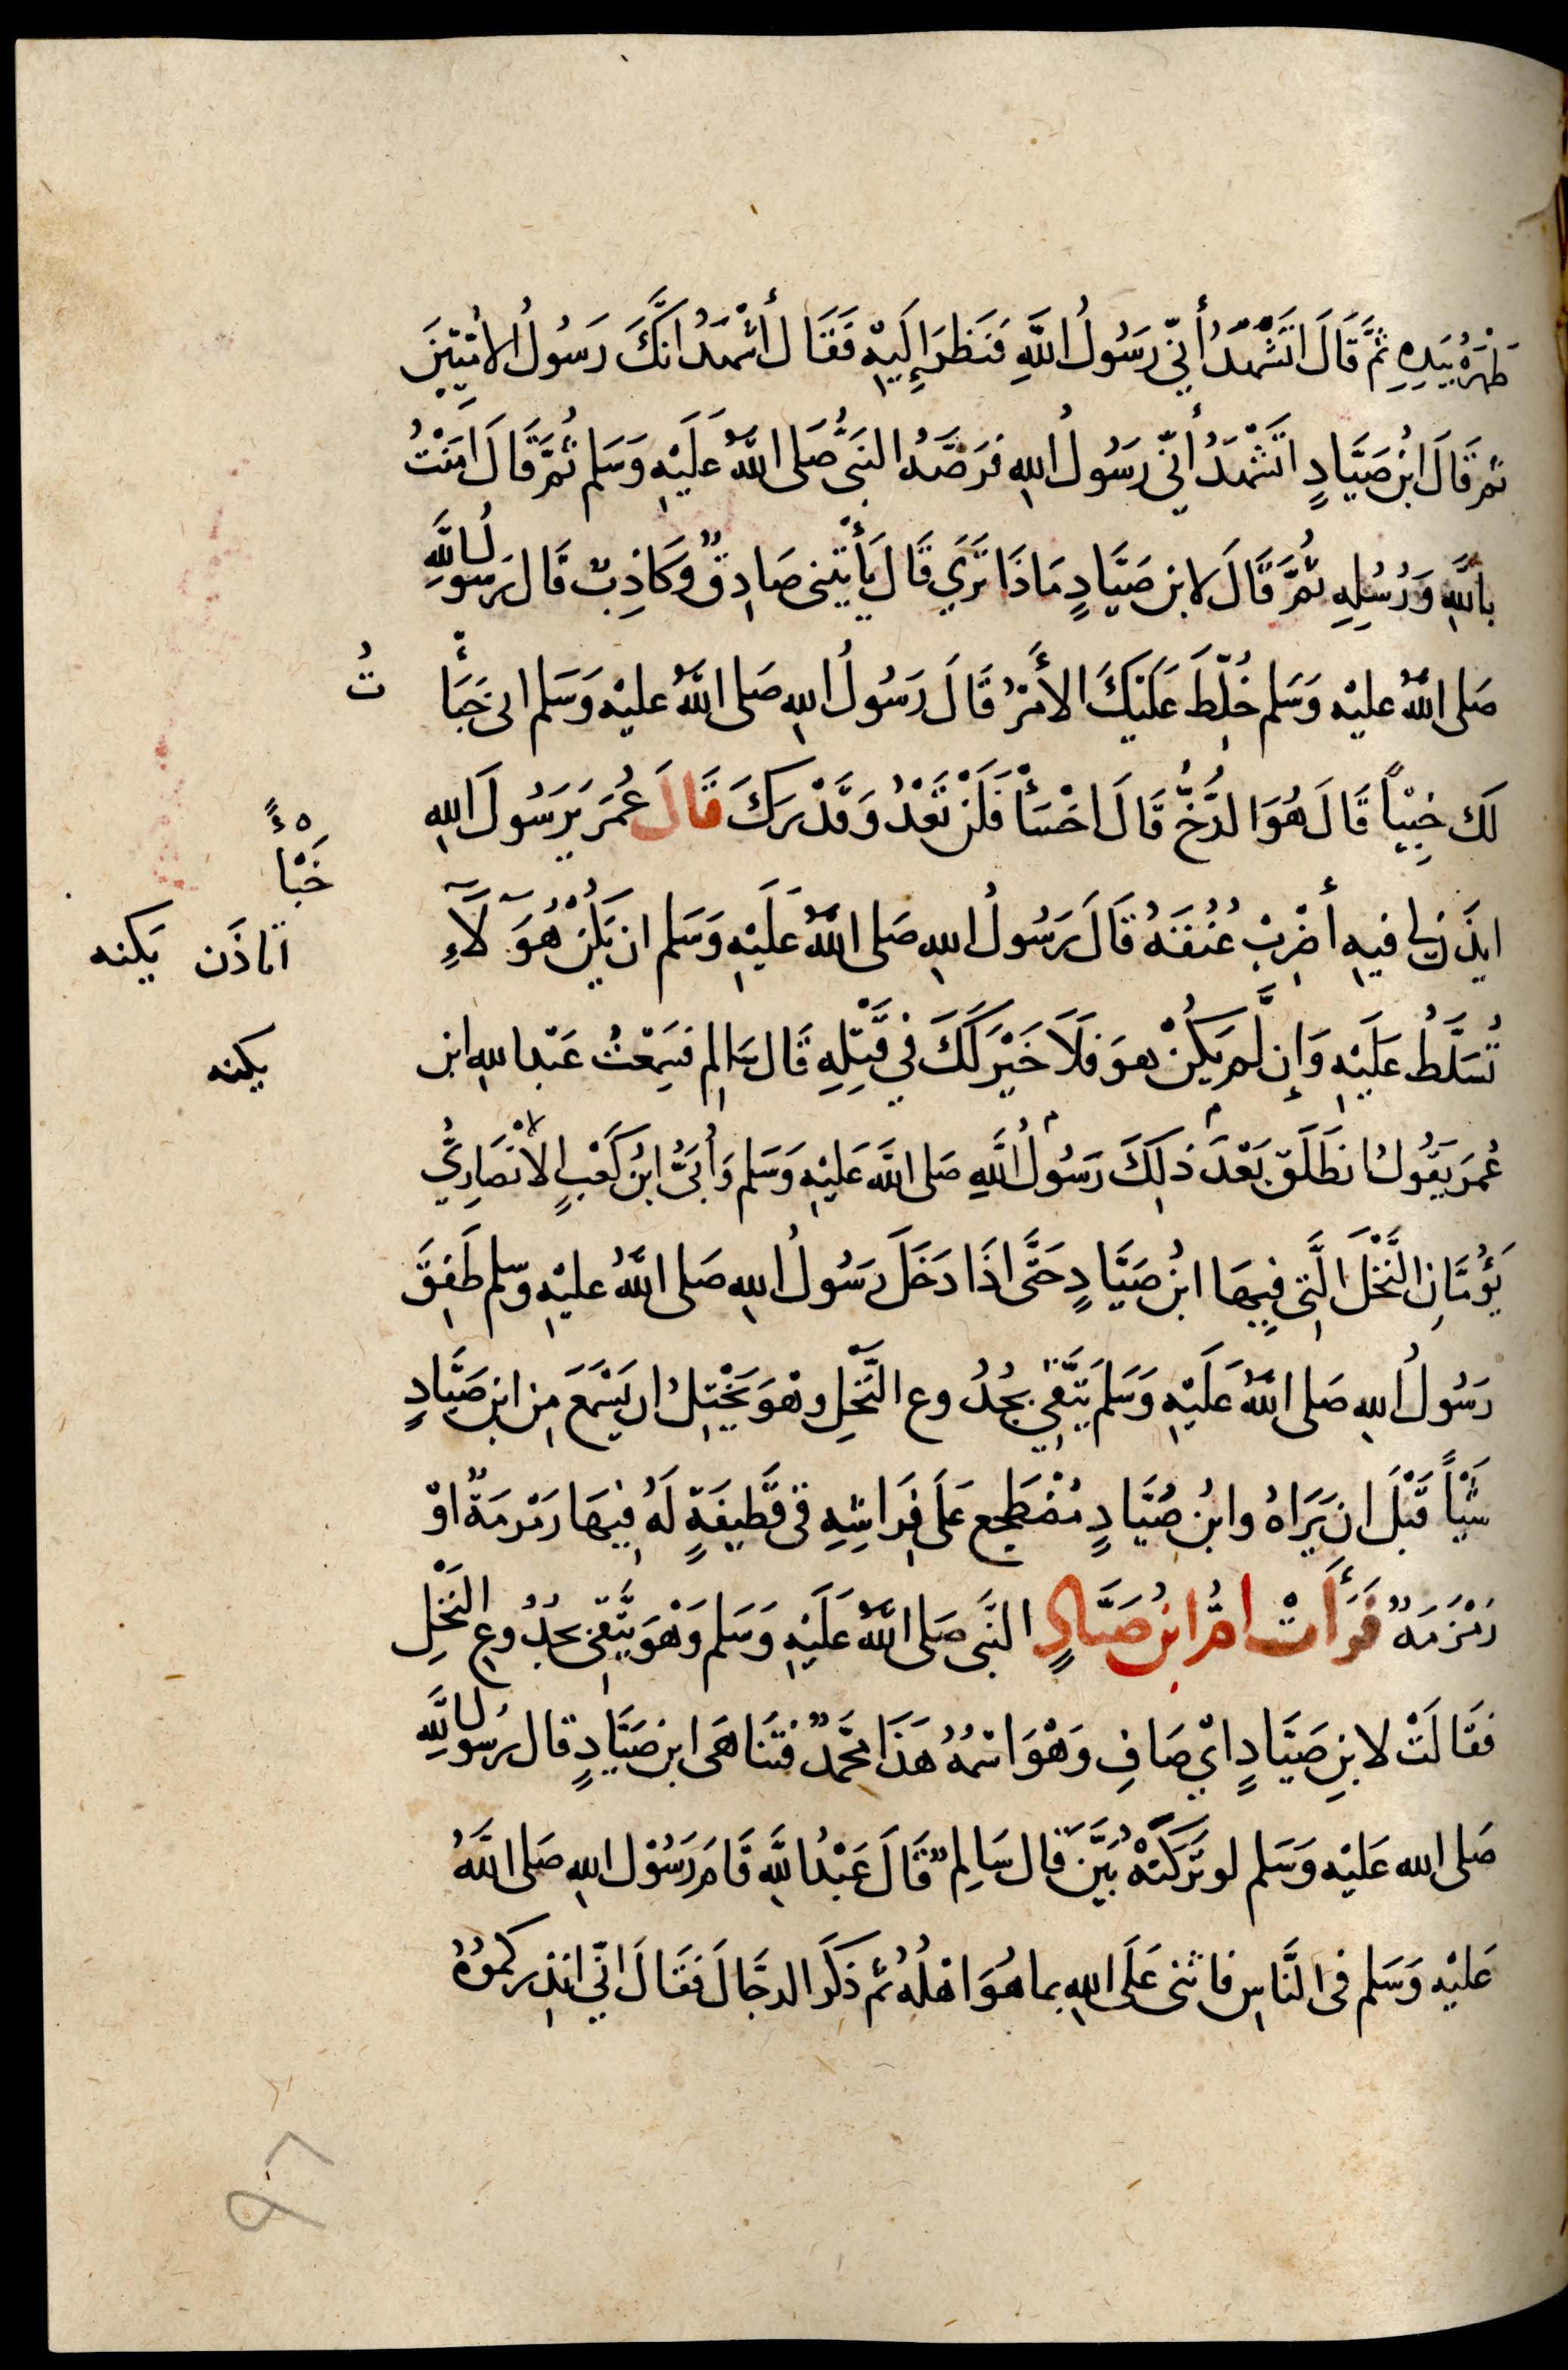 ظَهْرَهُ بِيَدِهِ ثُمَّ قَالَ اتَشْهَدُ أَنِّي رَسُولُ اللَّهِ فَنَظَرَ إِلَيْهِ فَقَالَ أَشْهَدُ انَّكَ رَسُولُ الامِّيِّينَ
ثم قَالَ ابْنُ صَيَّادٍ اتَشْهَدُ أَنِّي رَسُولُ اللهِ فَرَضَّهُ النَّبِيُّ صَلى اللَّهُ عَلَيْهِ وَسَلم ثُمَّ قَالَ امَنْتُ
بِاللَّهِ وَرُسُلِهِ ثُمَّ قَالَ لابن صَيَّادٍ مَاذَا تَرَي قَالَ يَأْتِينى صَادِقٌ وَكَاذِبٌ قَالَ رَسولُ اللَّهِ
صَلى اللَّهُ عليْه وَسَلم خُلِّطَ عَلَيْكَ الأَمْرُ قَالَ رَسُولُ اللهِ صَلى اللَّهُ عليْه وَسَلم انى خَبَأْ تُ
لَكَ خِبِيْأً قَالَ هُوَ الدُّخُّ قَالَ اخْسَأْ فَلَنْ تَعْدُ وَقَدْرَكَ قَالَ عُمَرُ يَرَسُولَ اللهِ
ايذَن لى فيهِ أَضْرِبْ عُنُقَهُ قَالَ رَسُولُ اللهِ صَلى اللَّهُ عَلَيْهِ وَسَلم ان يَكُنْ هُوَ لَا
تُسَلَّطُ عَلَيْهِ وَإِن لَّم يَكُنْ هوَ فَلَا خَيْرَ لَكَ فِي قَتْلِهِ قَالَ سَالِم فَسَمِعْتُ عَبْد اللهِ ابن
عُمَرَ يَقُولُ انطَلَقَ بَعْدَ ذلِكَ رَسُولُ اللَّهِ صَلى اللَّه عَلَيْهِ وَسَلم وَأُبَيُّ ابْنُ كَعْبٍ الأَنْصَارِيُّ
يَؤُمَّانِ النَّخْلَ الَّتِي فِيهَا ابْنُ صَيَّادٍ حَتَّى اذَا دَخَلَ رَسُولُ اللهِ صَلى اللَّهُ عليْهِ وسلم طَفِقَ
رَسُولُ اللهِ صَلى اللَّهُ عَلَيْهِ وَسَلم يَتَّقِي بجُذُوع النَّخْلِ وهْوَ يَخْتِلُ ان يَسْمَعَ مِن ابن صَيَّادٍ
شَيْأً قَبْلَ ان يَرَاهُ وابنُ صَيَّادٍ مُضْطَجِع عَلَى فِرَاشِهِ فى قَطِيفَةٍ لَهُ فِيهَا رَمْرَمَةٌ اوْ
زَمْزَمَةٌ فَرَأَتْ امُّ ابْنِ صَيَّادٍ النَّبِي صَلى اللَّهُ عَلَيْهِ وَسَلم وَهْوَ يَتَّقِي بجُذُوعِ النَّخْلِ
فَقَالَتْ لابنِ صَيَّادٍ ايْ صَافِ وَهْوَ اسْمُهُ هَذَا مُحَمَّدٌ فَتَنَاهَى ابن صَيَّادٍ قَال رَسُولُ اللَّهِ
صَلى الله عَليْه وَسَلم لو تَرَكَتْهُ بَيَّنَ قَالَ سَالِمٌ قَالَ عَبْدُ اللَّهِ قَامَ رَسُول اللهِ صَلى اللَّهُ
عَليْهِ وَسَلم فى النَّاسِ فاثنى عَلَى اللهِ بما هُوَ اهْلُهُ ثم ذَكَرَ الدجَّالَ فَقَالَ انّي انذِركموُهُ
خَبْأ
اتاذَن يَكنه
يكنه